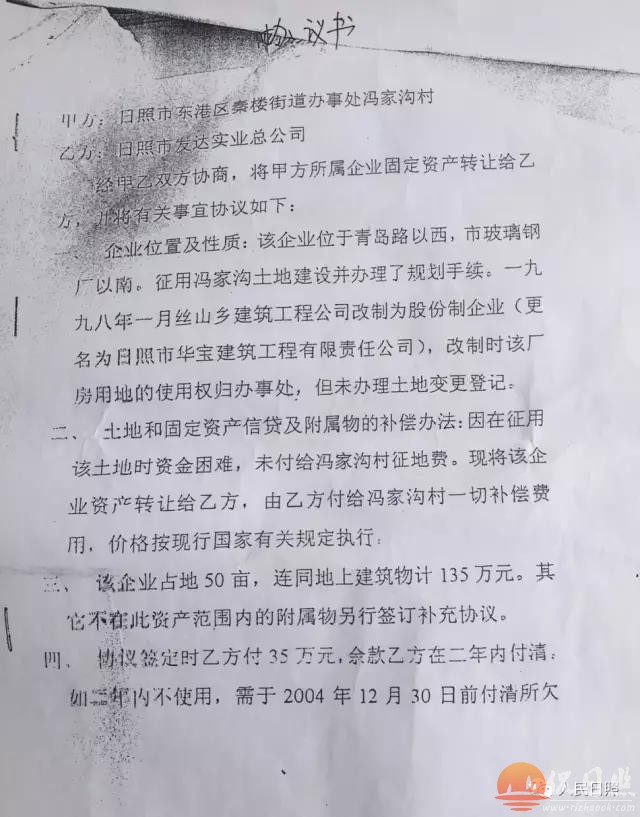 协议书
甲方：日照市东港区秦楼街道办事处冯家沟村
乙方：日照市发达实业总公司
经甲乙双方协商，将甲方所属企业固定资产转让给乙
方，并将有关事宜协议如下：
一、企业位置及性质：该企业位于青岛路以西，市玻璃钢
厂以南。征用冯家沟土地建设并办理了规划手续。一九
九八年一月丝山乡建筑工程公司改制为股份制企业（更
名为日照市华宝建筑工程有限责任公司），改制时该厂
房用地的使用权归办事处，但未办理土地变更登记。
二、土地和固定资产信贷及附属物的补偿办法：因在征用
该土地时资金困难，未付给冯家沟村征地费。现将该企
业资产转让给乙方，由乙方付给冯家沟村一切补偿费
用，价格按现行国家有关规定执行：
三、该企业占地50亩，连同地上建筑物计135万元。其
它不在此资产范围内的附属物另行签订补充协议。
四、协议签定时乙方付35万元，余款乙方在二年内付清。
如二年内不使用，需于2004年12月30日前付清所欠
人民日照
www.rizhaook.com